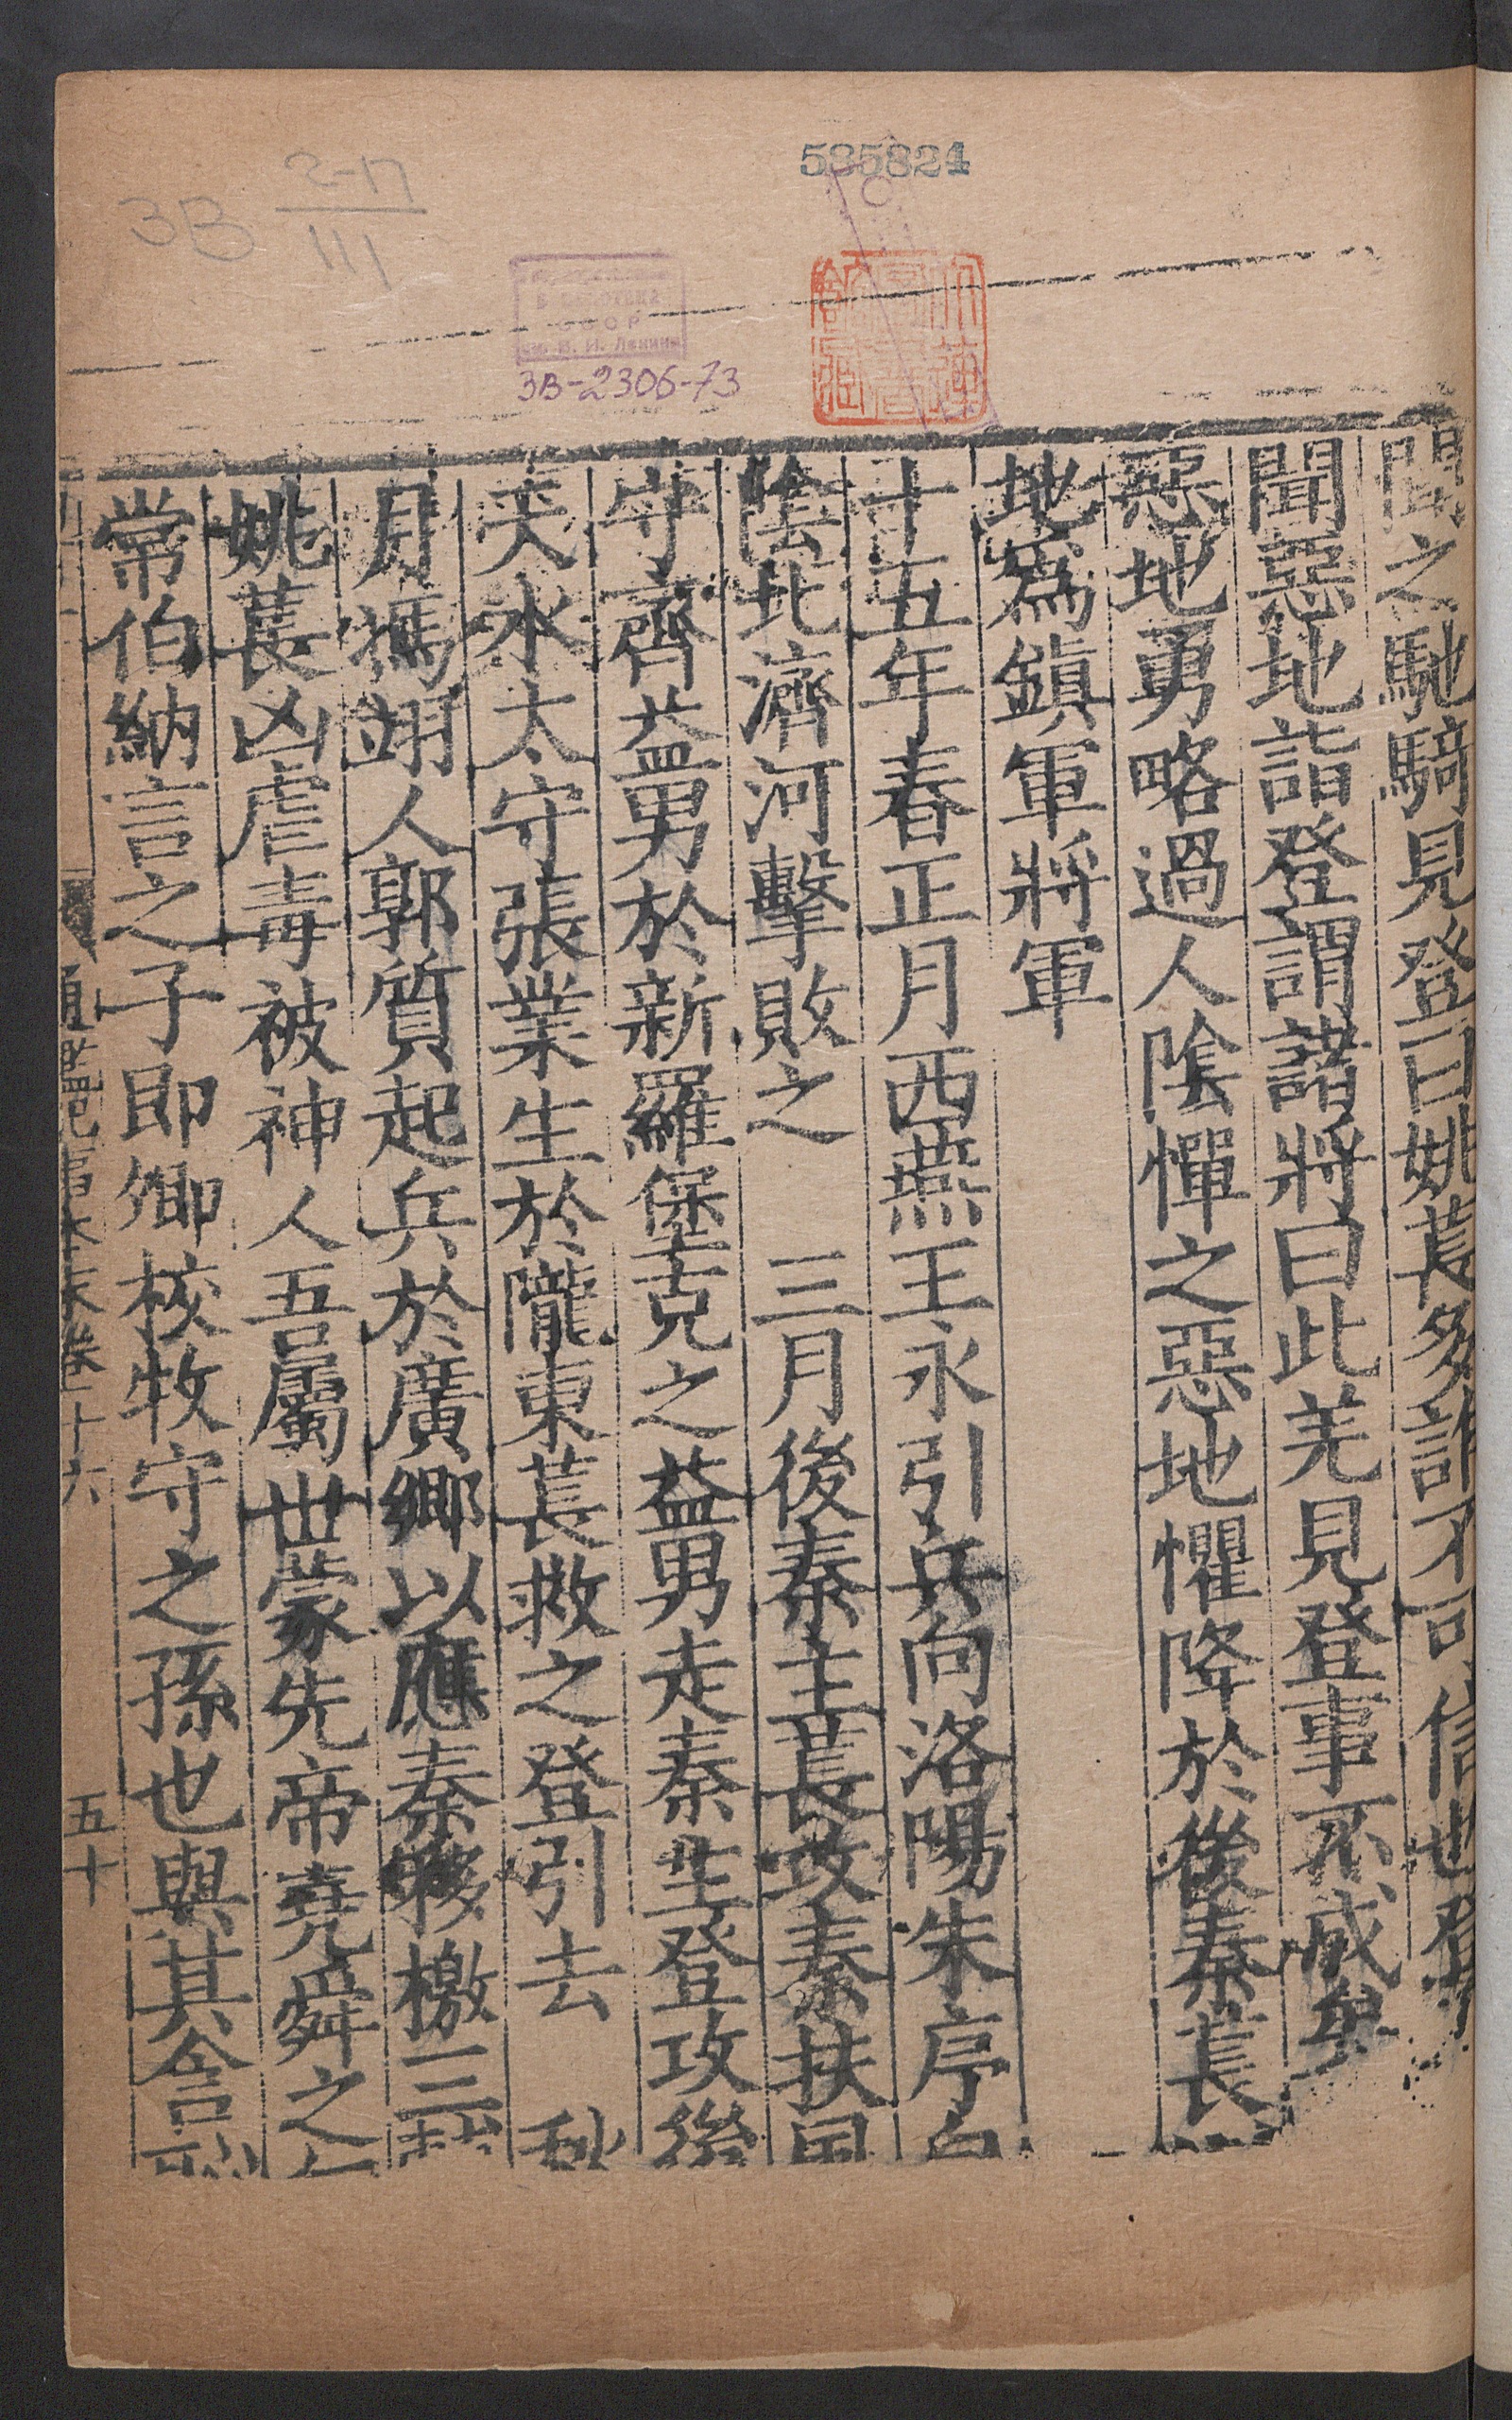 535824
3B 2-17
111
3B-2306-73
聞之馳騎見登曰姚萇多詐不可信也登
聞惡地詣登謂諸將曰此羌見登事不成矣
惡地勇略過人陰憚之惡地懼降於後秦萇
地爲鎮軍將軍
十五年春正月西燕王永引兵向洛陽朱序自
陰北濟河擊敗之 三月後秦主萇攻秦扶風
守齊益男於新羅堡克之益男走秦主登攻後
天水太守張業生於隴東萇救之登引去 秋
月馮翊人郭質起兵於廣鄉以應秦移檄三輔
姚萇凶虐毒被神人吾屬世蒙先帝堯舜之仁
常伯納言之子即卿校牧守之孫也與其含恥
通鑑紀事本末卷十六 五十